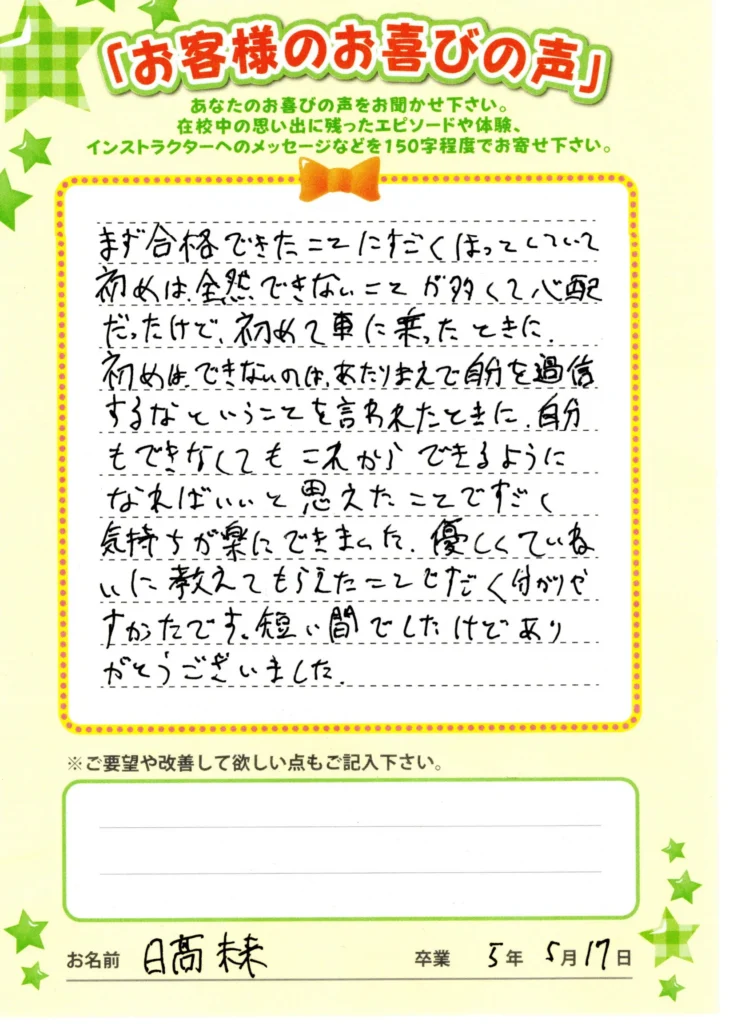 「お客様のお喜びの声」
あなたのお喜びの声をお聞かせ下さい。
在校中の思い出に残ったエピソードや体験、
インストラクターへのメッセージなどを150字程度でお寄せ下さい。
まず合格できたことにすごくほっとしていて
初めは全然できないことが多くて心配
だったけど、初めて車に乗ったときに、
初めはできないのは、あたりまえで自分を過信
するなということを言われたときに、自分
もできなくてもこれからできるように
なればいいと思えたことですごく
気持ちが楽にできました。優しくていね
いに教えてもらえたことですごく付がりや
すかったです。短い間でしたけどあり
がとうございました。
※ご要望や改善して欲しい点もご記入下さい。
お名前 日高 未来 卒業 5年 5月17日